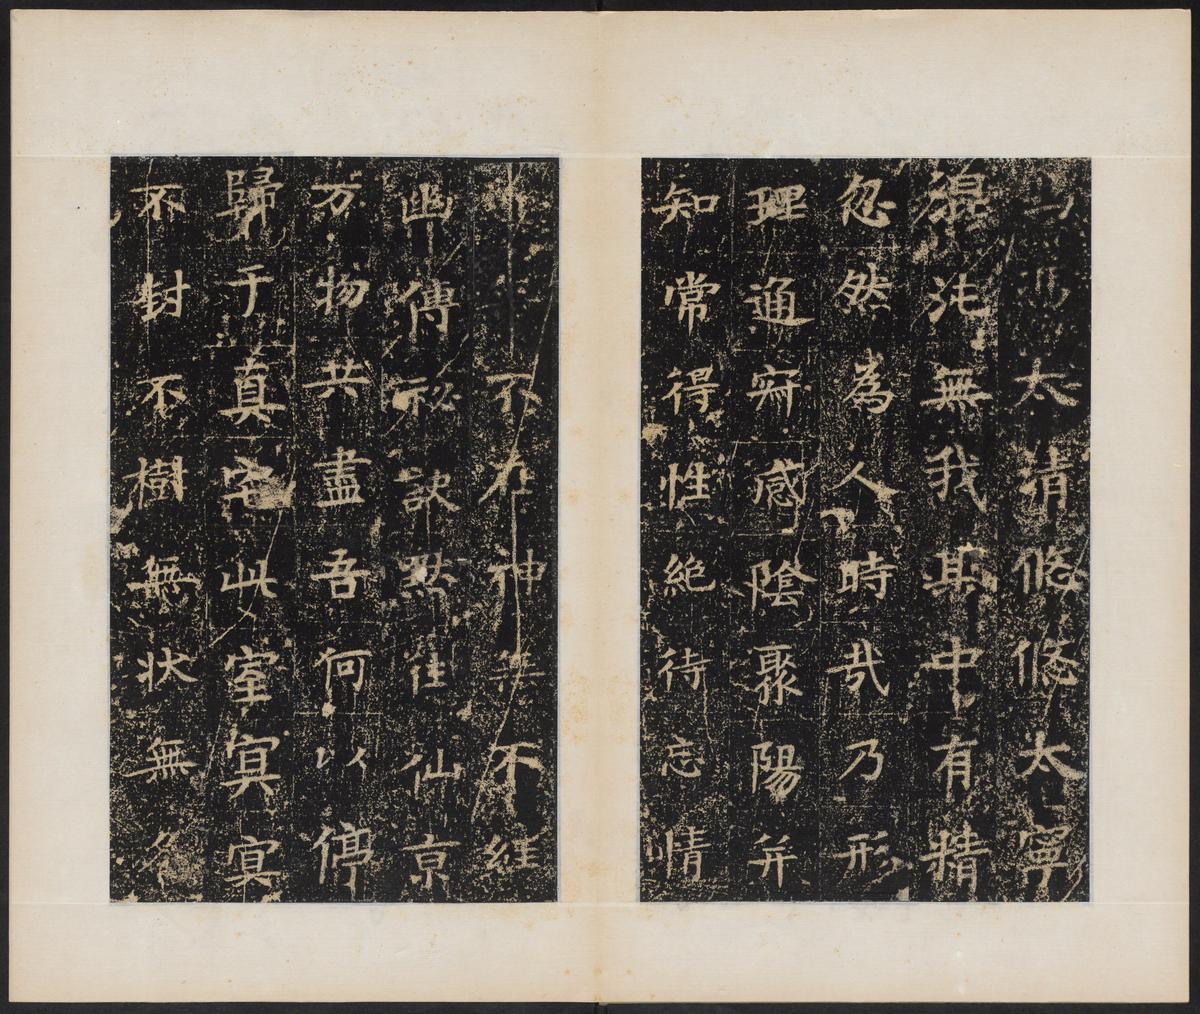 太清悠悠太寧
混沌無我其中有精
忽然為人時哉乃形
理通寂感陰聚陽并
知常得性絶待忘情
不在神無不經
幽傳祕訣默往仙京
万物共盡吾何以停
歸于真宅此室冥冥
不封不樹無状無名